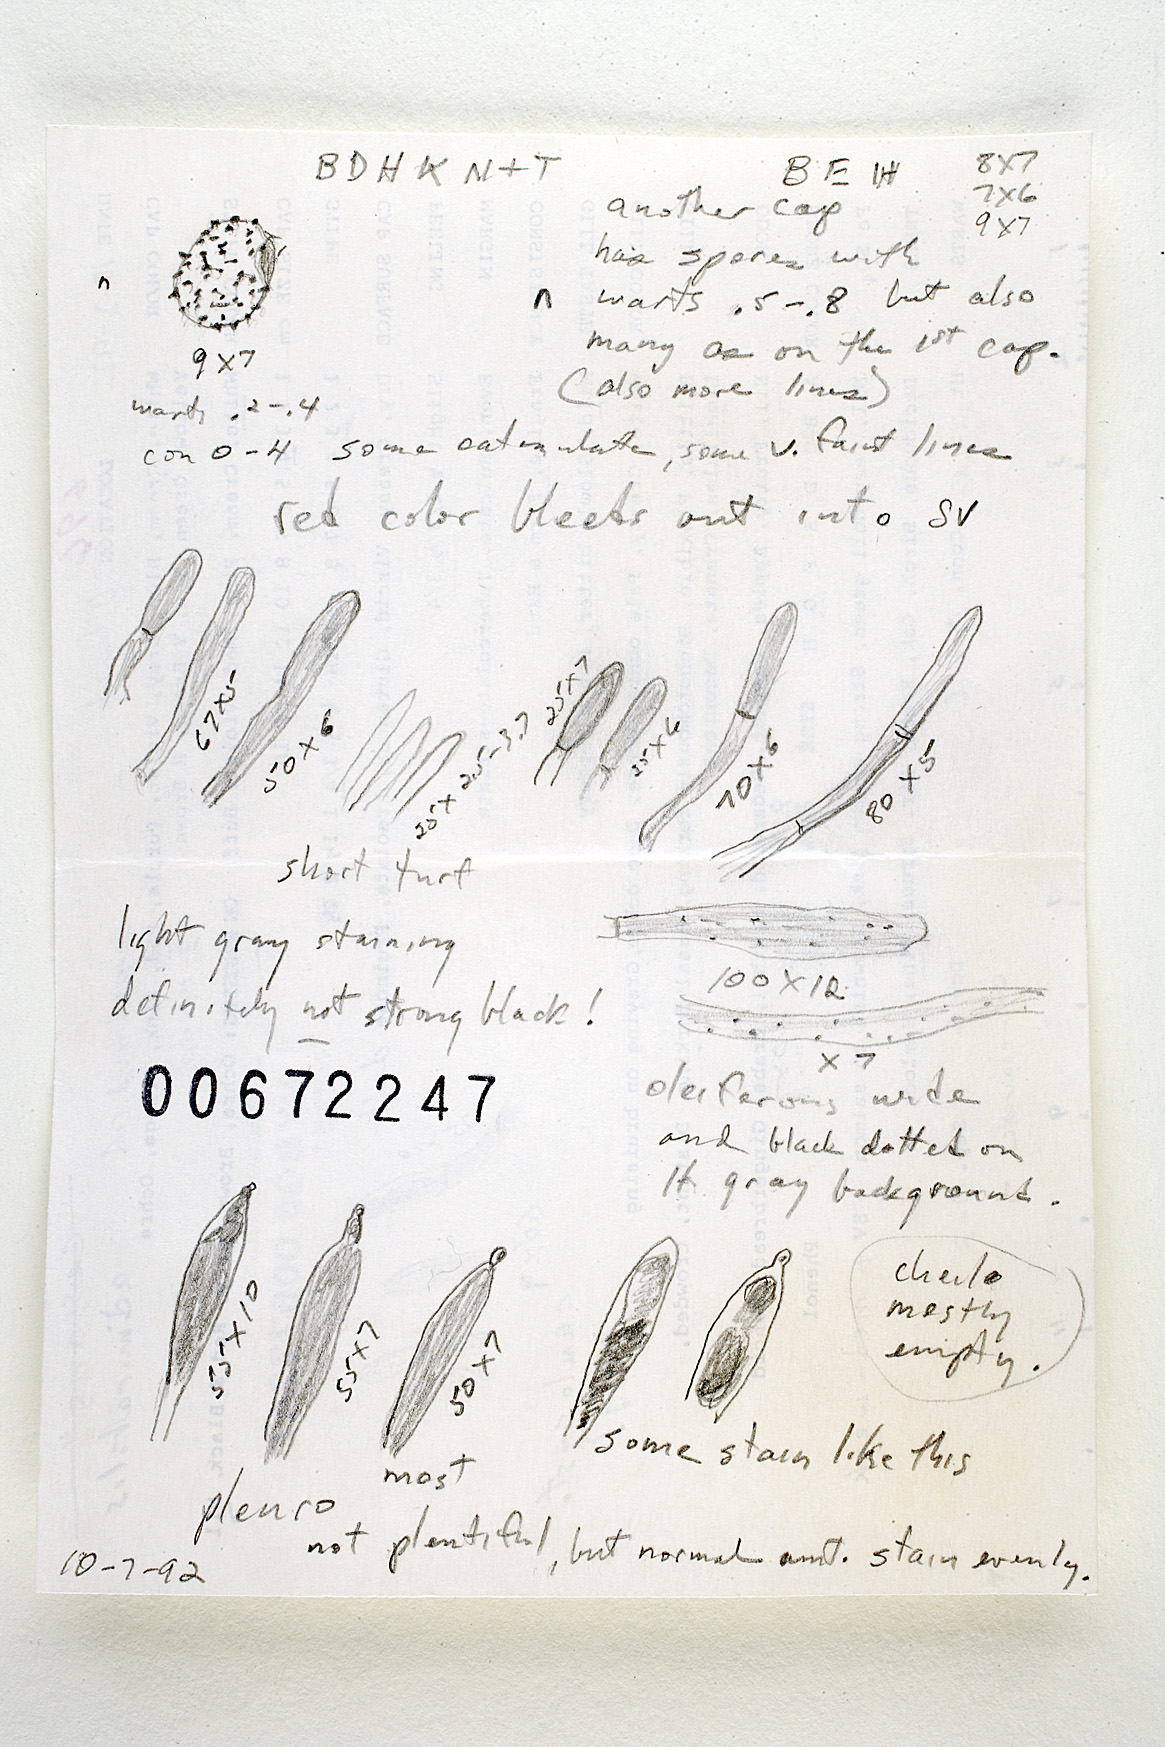 BDHKN+T
BEIH
8X7
7X6
9X7
another cap
has spores with
n warts .5-.8 but also
many as on the 1st cap.
(also more lines)
n
9X7
warts .2-.4
con 0-4 some catenulate, some v. faint lines
red color bleeds out into SV
67X5
50X6
25X 2.5-3.7
25X7
25X6
70X6
80X5
short turf
light gray staining
definitely not strong black!
100X12
X7
00672247
oleiferous wide
and black dotted on
lt gray background.
55X10
55X7
50X7
cheilo
mostly
empty.
some stain like this
most
pleuro
not plentiful, but normal amt. stain evenly.
10-7-92